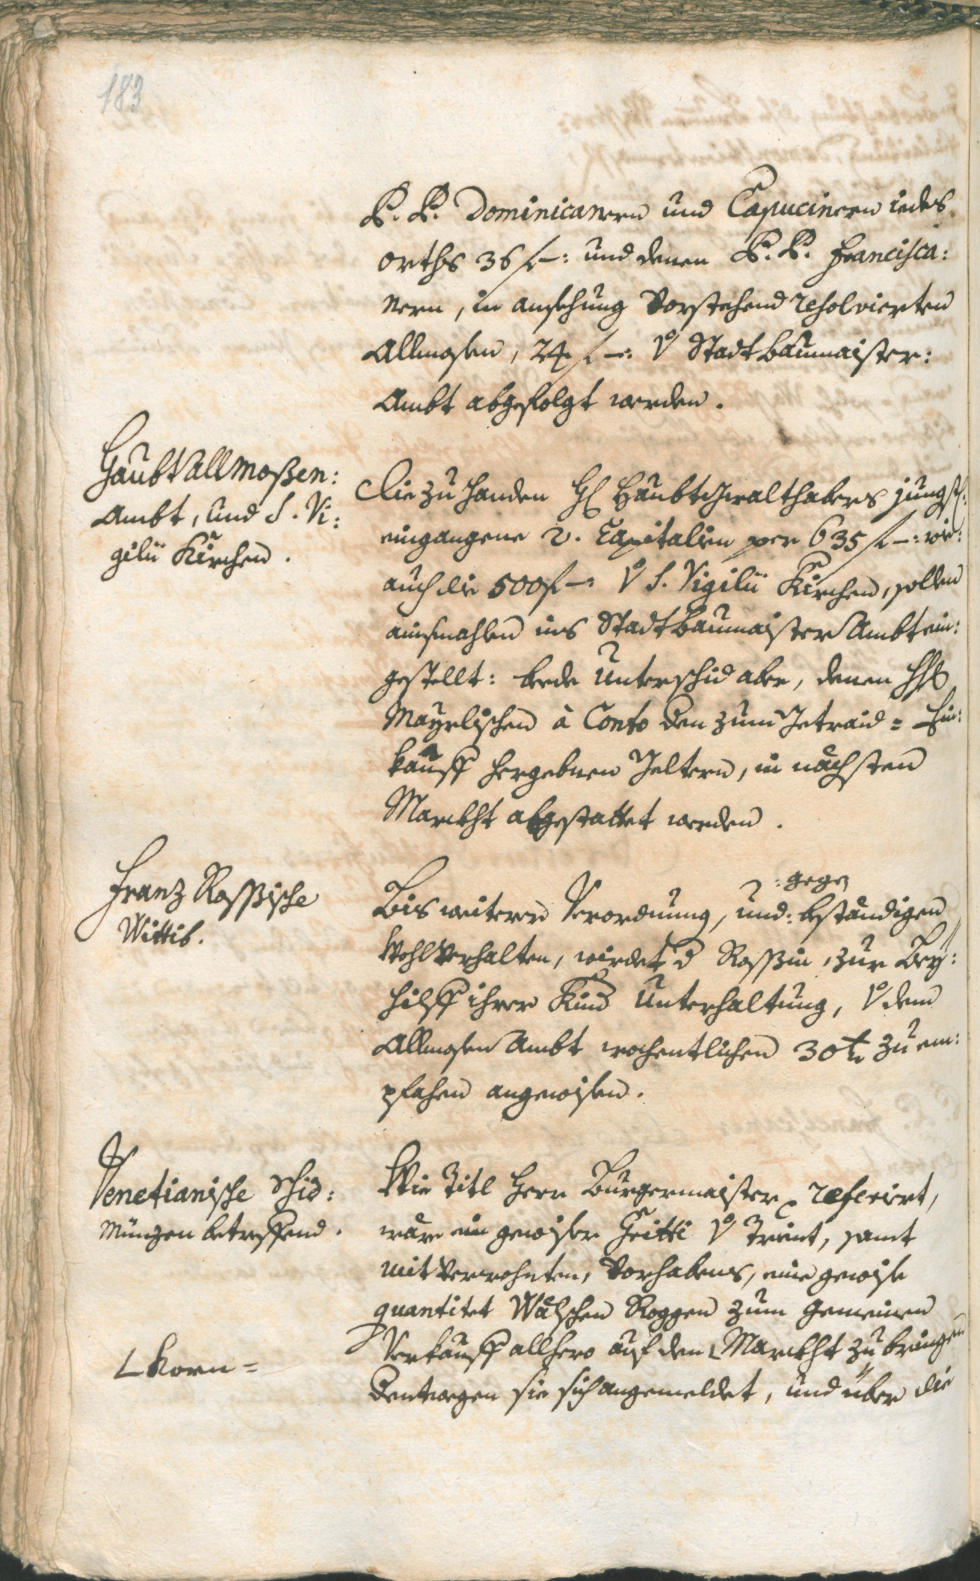 183
P. P. Dominicanern und Capucinern iedes
orths 36 f –: und denen P. P. Francisca:
nern, in ansehung vorstehend resolvierten
Allmosen, 24 f –: v. Stadtbaumaister:
Ambt abgefolgt werden.
Haubt Allmoßen:
Ambt, und S. Vi:
gilii Kirchen.
Die zu handen H. Haubtgwalthabers jungst:
eingangene 2. Capitalien per 635 f –: wie:
auch die 500 f –: v. S. Vigilii Kirchen, sollen
ainsmahlen ins Stadtbaumaister Ambt ein:
gestellt: beede unterschid aber, denen HH.
Mayrlischen à Conto den zum Getraid = Ein:
kauff hergebnen Geltern, in nächsten
Marckht abgestattet werden.
Franz Rossische
Wittib.
Bis weitere Verordnung, und: :gegen
beständigen
Wohlverhalten, wirdet d. Rossin, zur Bey:
hilff ihrer Kind unterhaltung, v. dem
Allmosen Ambt wochentlichen 30 kr. zu em:
pfahen angewisen.
Venetianische Schid:
Münzen betreffend.
Wie Titl Herr Burgermaister referiert,
wäre ein gewiser Geitti v. Trient, samt
mitverwohnten, vorhabens, eine gewise
quantitet Wälschen Roggen zum gemeinen
Verkauff allhero auf den L Marckht zu bringen
L Korn =
Dentwegen sie sich angemeldet, und über die